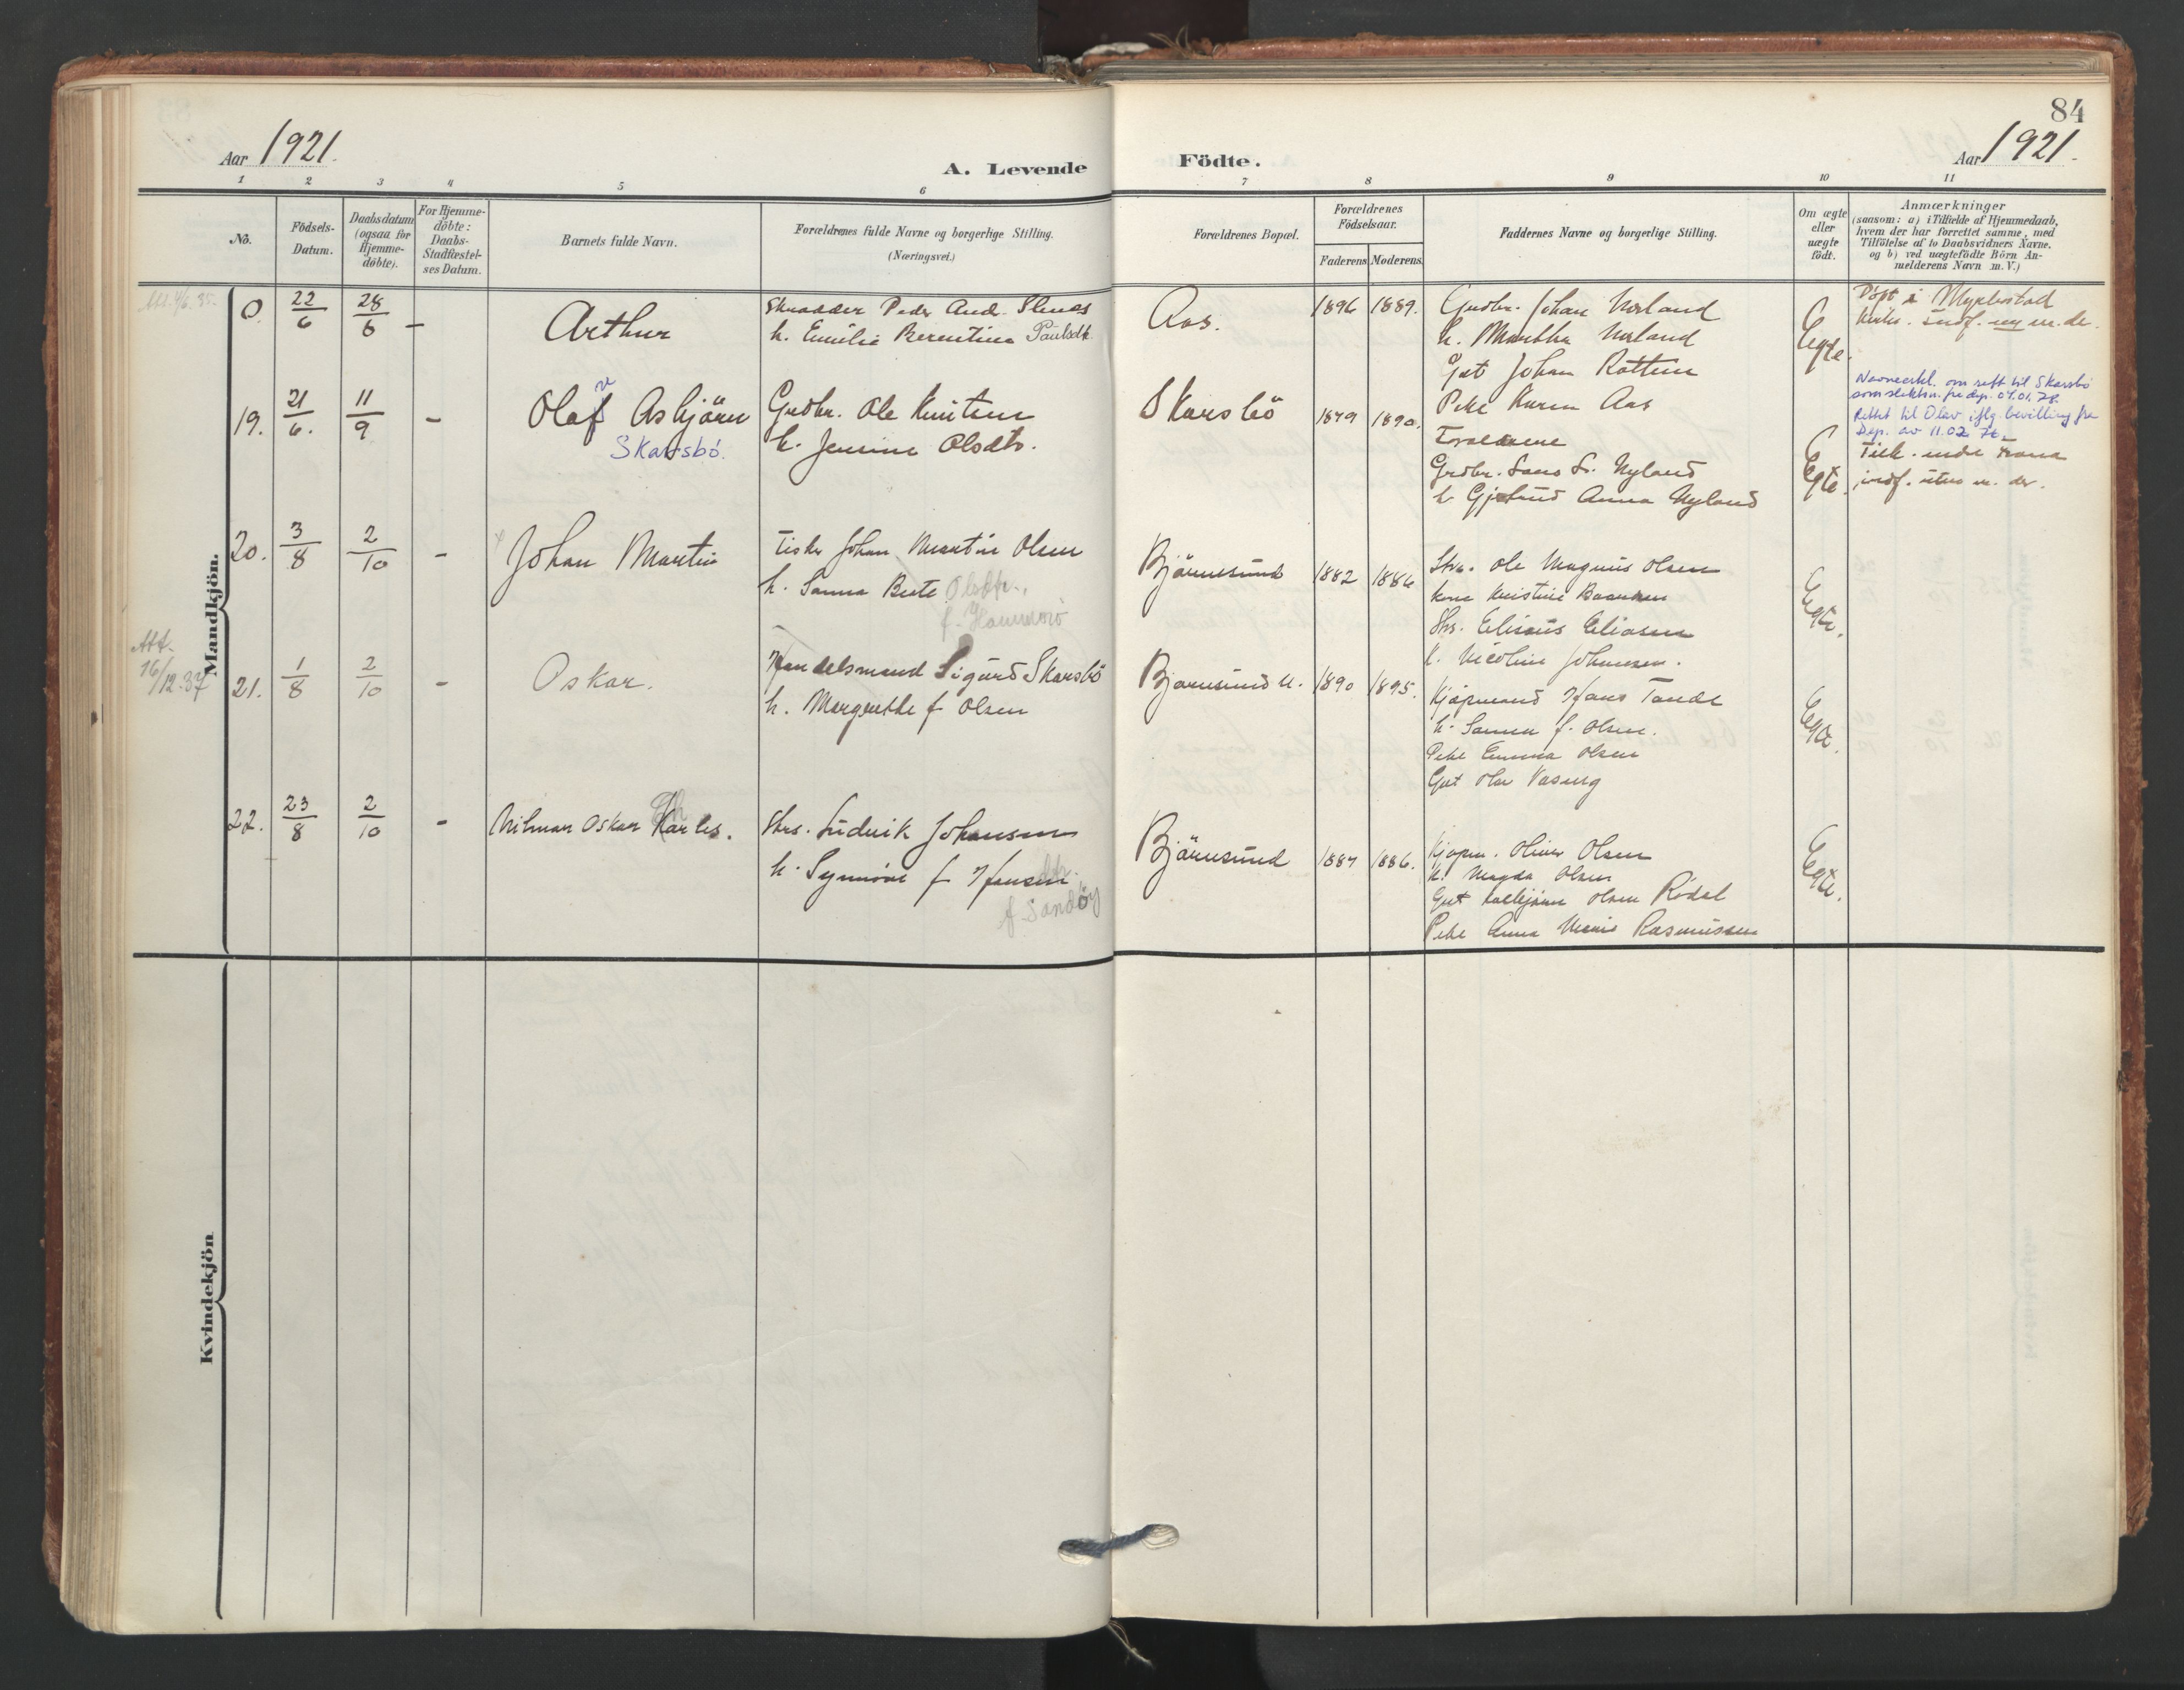 84
Aar 1921.
A. Levende Födte.
Aar 1921.
1 2 3 4 5 6 7 8 9 10 11
No.
Födsels-
Datum.
Daabsdatum
(ogsaa for
Hjemme-
döbte).
For Hjemme-
döbte:
Daabs-
Stadfæstel-
ses Datum.
Barnets fulde Navn.
Forældrenes fulde Navne og borgerlige Stilling.
(Næringsvei.)
Forældrenes Bopæl.
Forældrenes
Födselsaar.
Faderens
Moderens.
Faddernes Navne og borgerlige Stilling.
Om ægte
eller
uægte
födt.
Anmærkninger
(saasom: a) i Tilfælde af Hjemmedaab,
hvem der har forrettet samme, med
Tilföielse af to Daabsvidners Navne,
og b) ved uægtefödte Börn An-
melderens Navn m. V.)
Mandkjön.
0. 22/6 28/6 -
Arthur
Skrædder Peder And. Slenes
h. Emilie Berentine Paulsdtr.
Aas.
1896 1889.
Grdbr. Johan Norland
h. Marthe Norland
Gut Johan Rottem
Pike Karen Aas
Egte.
Döpt i Myklestad
Kirke.
19. 21/6. 11/9 -
Olaf v Asbjörn
Skarsbö.
Grdbr. Ole Knutsen
h. Jensine Olsdtr.
Skarsbö
1879 1890.
Forældrene
Grdbr. Lars L. Nyland
h Gjertrud Anna Nyland
Egte.
Navneerkl. om rett til Skarsbö
som slektsn. fra dep. 04.01.78.
Rettet til Olav iflg. bevilling fra
Dep. av 11.02
20. 3/8 2/10 -
Johan Martin
Fisker Johan Martin Olsen
h. Sanna Berte Olsdtr.,
f. Hammerö
Björnesund
1882 1886
Strs. Ole Magnus Olsen
kone Kristine
Strs. Eliseus Eliasen
k. Nicoline Johansen.
Egte.
Att.
16/12-37
21. 1/8 2/10 -
Oskar.
Handelsmand Sigurd Skarsbö
h. Margrethe f Olsen
Bjornesund
1890 1895.
Kjöpmand Hans Tande
h. Sanna f. Olsen.
Pike Emma Olsen
Gut Olav
Egte.
22. 23/8 2/10 -
Hilmar Oskar Karles.
Strs. Ludvik Johansen
h. Synnöve f Hansen
f Sandöy
Björnesund
1887 1886.
Kjöpm. Oliver Olsen
k. Magda Olsen
Gut Kolbjörn Olsen Rödal
Pike Anna Marie Rasmussen
Egte.
Kvindekjön